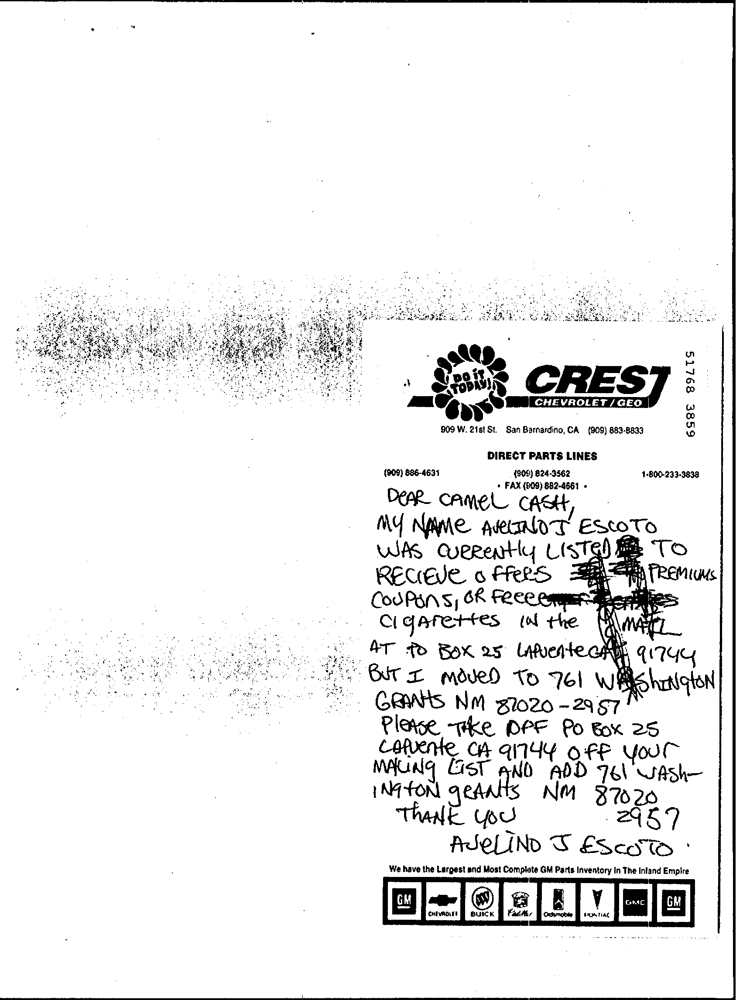 DO IT
TODAY!
CREST
CHEVROLET / GEO
51768 3859
909 W. 21st St. San Bernardino, CA (909) 883-8833
DIRECT PARTS LINES
(909) 886-4631 (909) 824-3562 1-800-233-3838
• FAX (909) 882-4661 •
DEAR CAMEL CASH,
MY NAME AVELINO J ESCOTO
WAS CURRENTLY LISTED TO
RECIEVE OFFERS PREMIUMS
COUPONS, OR FREEE
CIGARETTES IN the MAIL
AT PO BOX 25 LAPUENTE CA 91744
BUT I MOVED TO 761 WAShINGTON
GRANTS NM 87020-2957
PLEASE TAKE OFF PO BOX 25
LAPUENTE CA 91744 OFF YOUR
MALING LIST AND ADD 761 WASH-
INGTON gRANTS NM 87020
THANK YOU 2957
AVELINO J ESCOTO.
We have the Largest and Most Complete GM Parts Inventory In The Inland Empire
GM CHEVROLET BUICK Cadillac Oldsmobile PONTIAC GMC GM